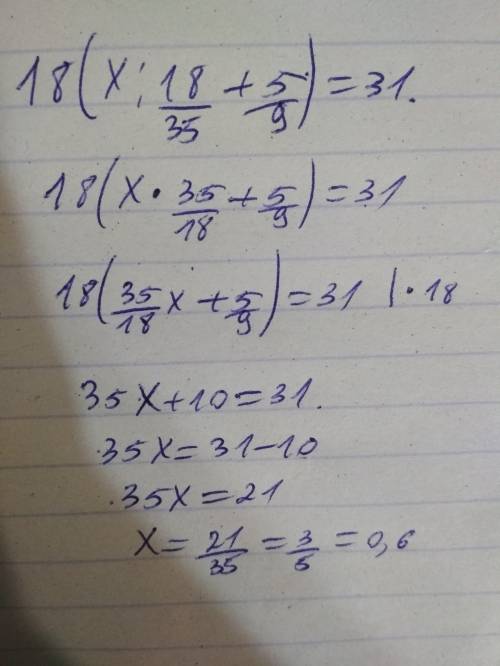 18(x : 18/35 + 5/9) = 31.
18(x · 35/18 + 5/9) = 31
18(35/18 x + 5/9) = 31 | · 18
35x + 10 = 31.
35x = 31 - 10
35x = 21
x = 21/35 = 3/5 = 0,6